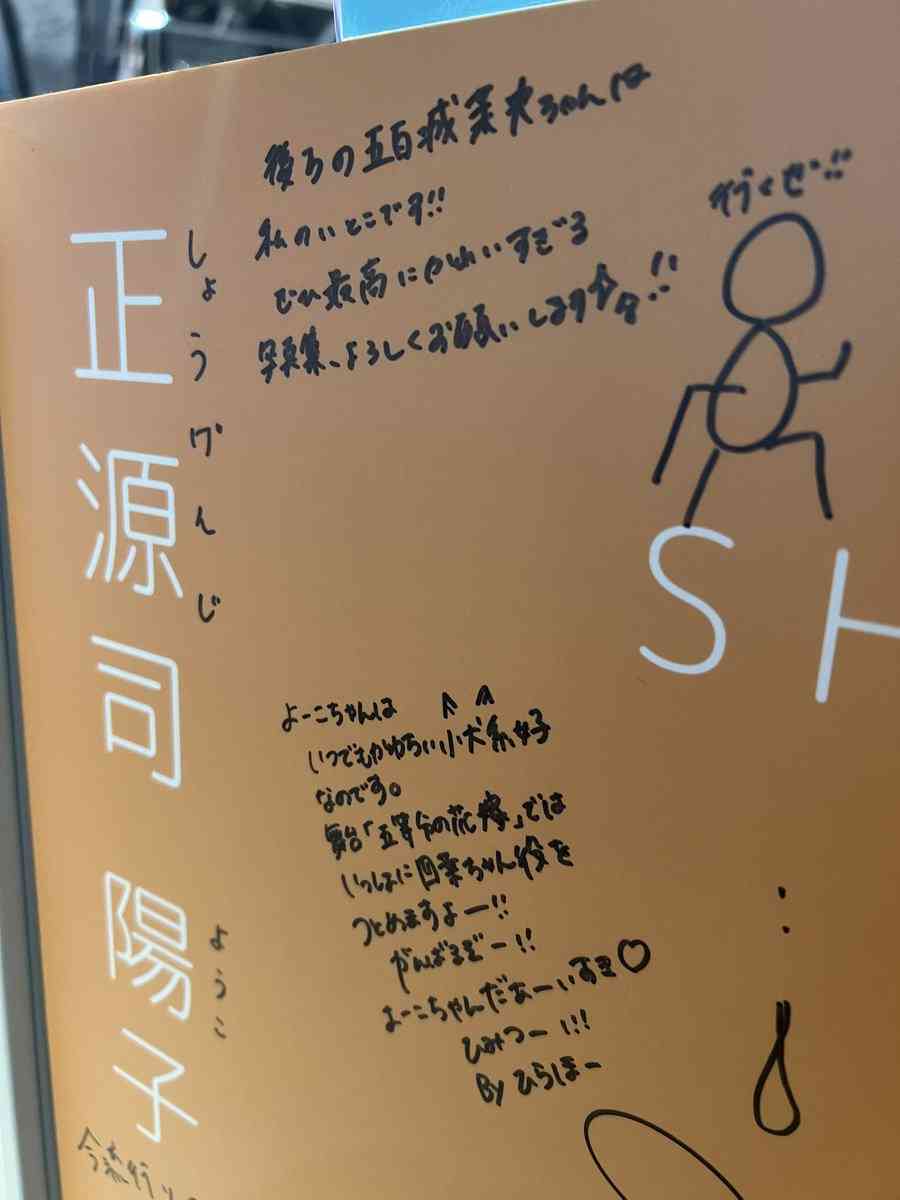 後ろの五百城茉央ちゃんは
私のいとこです!!
最高にかわいすぎる
写真集、よろしくお願いします!!
行くぜ!!
正源司 陽子
しょうげんじ
ようこ
SH
よーこちゃんは
いつでもかわちい小犬系女子
なのです。
舞台「五等分の花嫁」では
いっしょに四葉ちゃん役を
つとめますよー!!
がんばるぞー!!
よーこちゃんだぁーいすき♡
ひみつー!!!
By ひらほー
今流行り